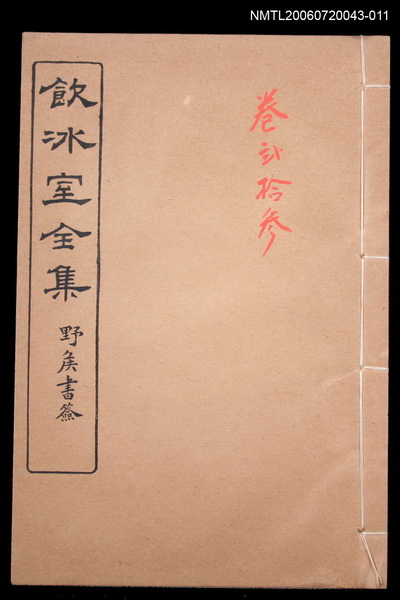 NMTL20060720043-011
卷弐拾參
飲冰室全集
野矦書簽